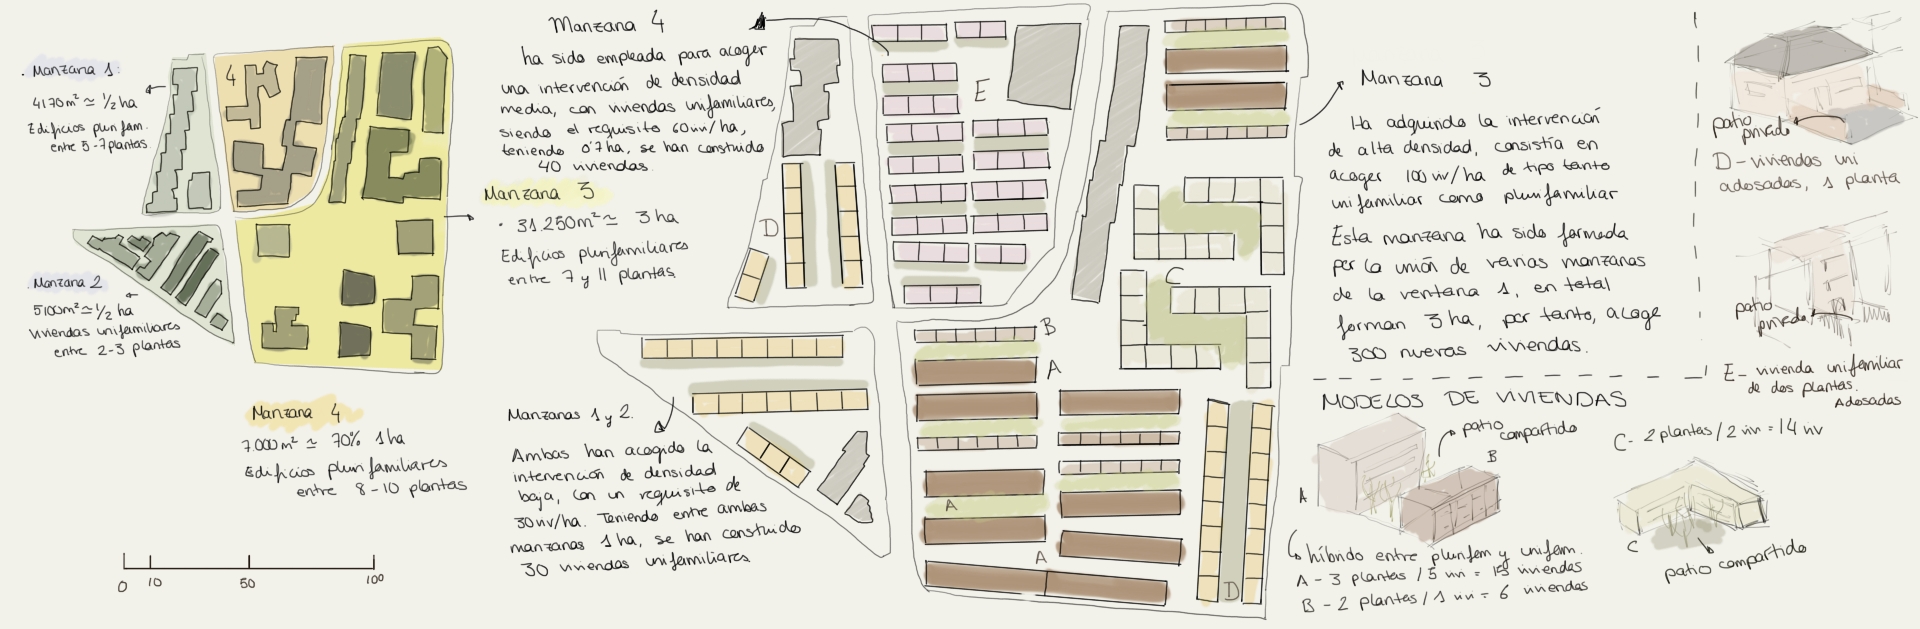 . Manzana 1:
4170m² ≃ ½ ha
Edificios plurifam.
entre 5-7 plantas.
4
. Manzana 2
5100m² ≃ ½ ha
viviendas unifamiliares
entre 2-3 plantas
Manzana 4
7.000m² ≃ 70% 1ha
Edificios plurifamiliares
entre 8-10 plantas
0 10 50 100
Manzana 4
ha sido empleada para acoger
una intervención de densidad
media, con viviendas unifamiliares,
siendo el requisito 60viv/ha,
teniendo 0'7ha, se han construido
40 viviendas.
Manzana 3
· 31.250m² ≃ 3 ha
Edificios plurifamiliares
entre 7 y 11 plantas.
Manzanas 1 y 2.
Ambas han acogido la
intervención de densidad
baja, con un requisito de
30viv/ha. Teniendo entre ambas
manzanas 1 ha, se han construido
30 viviendas unifamiliares.
E
D
C
B
A
A
A
D
Manzana 3
Ha adquirido la intervención
de alta densidad, consistía en
acoger 100 viv/ha de tipo tanto
unifamiliar como plurifamiliar
Esta manzana ha sido formada
por la unión de varias manzanas
de la ventana 1, en total
forman 3 ha, por tanto, acoge
300 nuevas viviendas.
patio
privado
D - viviendas uni
adosadas, 1 planta
patio
privado
E - vivienda unifamiliar
de dos plantas.
Adosadas
MODELOS DE VIVIENDAS
patio
compartido
A
B
híbrido entre plurifam y unifam.
A - 3 plantas / 5 viv = 15 viviendas
B - 2 plantas / 1 viv = 6 viviendas
C - 2 plantas / 2 viv = 14 viv
C
patio compartido